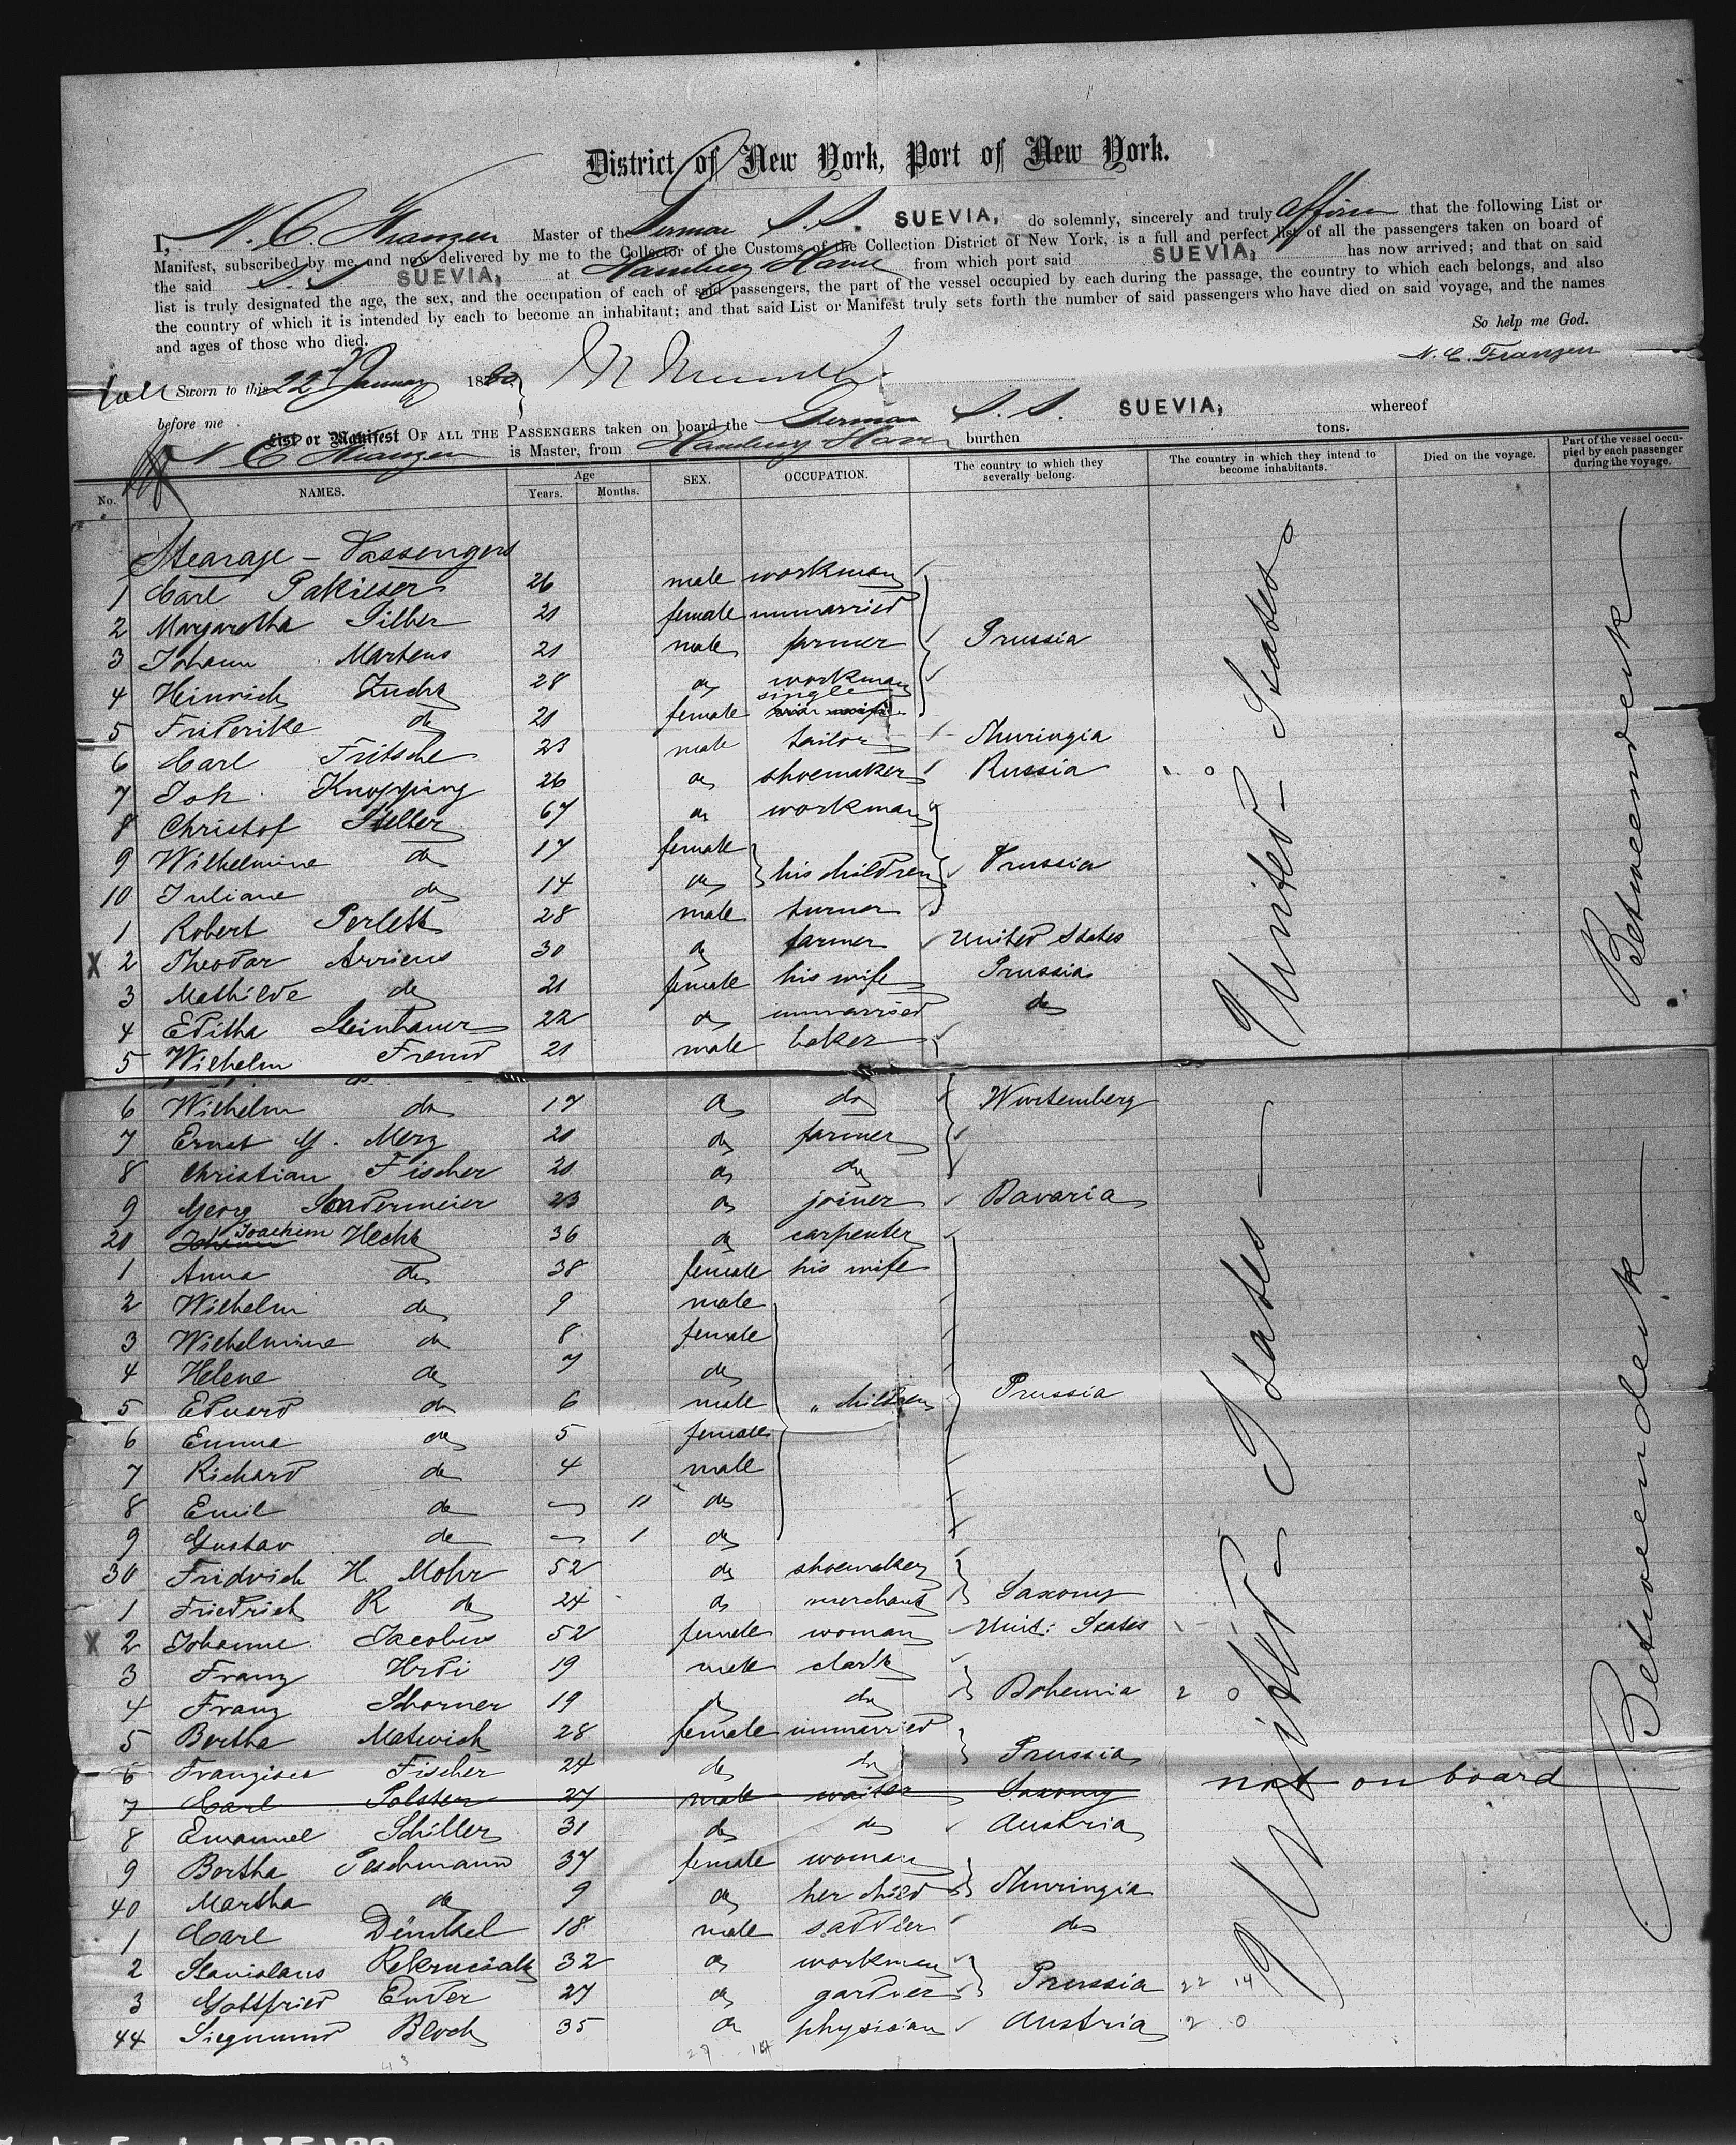 District of New York, Port of New York.
I, N. C. Franzen Master of the German S. S. SUEVIA, do solemnly, sincerely and truly affirm that the following List or
Manifest, subscribed by me, and now delivered by me to the Collector of the Customs of the Collection District of New York, is a full and perfect list of all the passengers taken on board of
the said S. S. SUEVIA, at Hamburg Havre from which port said SUEVIA, has now arrived; and that on said
list is truly designated the age, the sex, and the occupation of each of said passengers, the part of the vessel occupied by each during the passage, the country to which each belongs, and also
the country of which it is intended by each to become an inhabitant; and that said List or Manifest truly sets forth the number of said passengers who have died on said voyage, and the names
and ages of those who died.
So help me God.
N. C. Franzen
Sworn to this 22 January 1880
before me
List or Manifest OF ALL THE PASSENGERS taken on board the German S. S. SUEVIA, whereof
N C Franzen is Master, from Hamburg Havre burthen tons.
No. NAMES. Age Years. Months. SEX. OCCUPATION. The country to which they severally belong. The country in which they intend to become inhabitants. Died on the voyage. Part of the vessel occupied by each passenger during the voyage.
Stearage - Passengers
1 Carl Pakieser 26 male workman
2 Margaretha Silber 21 female unmarried
3 Johann Martens 21 male farmer Prussia
4 Heinrich Zucht 28 do workman
5 Friderike do 21 female single
6 Carl Fritsche 23 male tailor Thuringia
7 Joh. Knopping 26 do shoemaker Russia
8 Christof Steller 67 do workman
9 Wilhelmine do 17 female
10 Juliane do 14 do his children Prussia
1 Robert Perleth 28 male turner
X 2 Theodor Arriens 30 do farmer United States
3 Mathilde do 21 female his wife Prussia
4 Editha Steinhauer 22 do unmarried do
5 Wilhelm Freund 21 male baker
6 Wilhelm do 17 do do Wurtemberg
7 Ernst G. Merz 20 do farmer
8 Christian Fischer 20 do do
9 Georg Sondermeier 23 do joiner Bavaria
20 Johann Joachim Hecht 36 do carpenter
1 Anna do 38 female his wife
2 Wilhelm do 9 male
3 Wilhelmine do 8 female
4 Helene do 7 do
5 Eduard do 6 male " children Prussia
6 Emma do 5 female
7 Richard do 4 male
8 Emil do 11 do
9 Gustav do 1 do
30 Fridrich H. Mohr 52 do shoemaker
1 Friedrich R do 24 do merchant Saxony
X 2 Johanne Jacobus 52 female woman Unit: States
3 Franz Hrdi 19 male clark
4 Franz Schorner 19 do do Bohemia 2 0
5 Bertha Matewich 28 female unmarried
6 Franzisca Fischer 24 do do Prussia
7 Carl Polster 27 male waiter Saxony not on board
8 Emanuel Schiller 31 do do Austria
9 Bertha Peschmann 37 female woman
40 Martha do 9 do her child Thuringia
1 Carl Dünkel 18 male saddler do
2 Stanislaus Rekruciak 32 do workman
3 Gottfried Ender 27 do gardner Prussia 22 14
44 Siegmund Bloch 35 do physician Austria 2 0
United States
Betweendeck
United States
Betweendeck